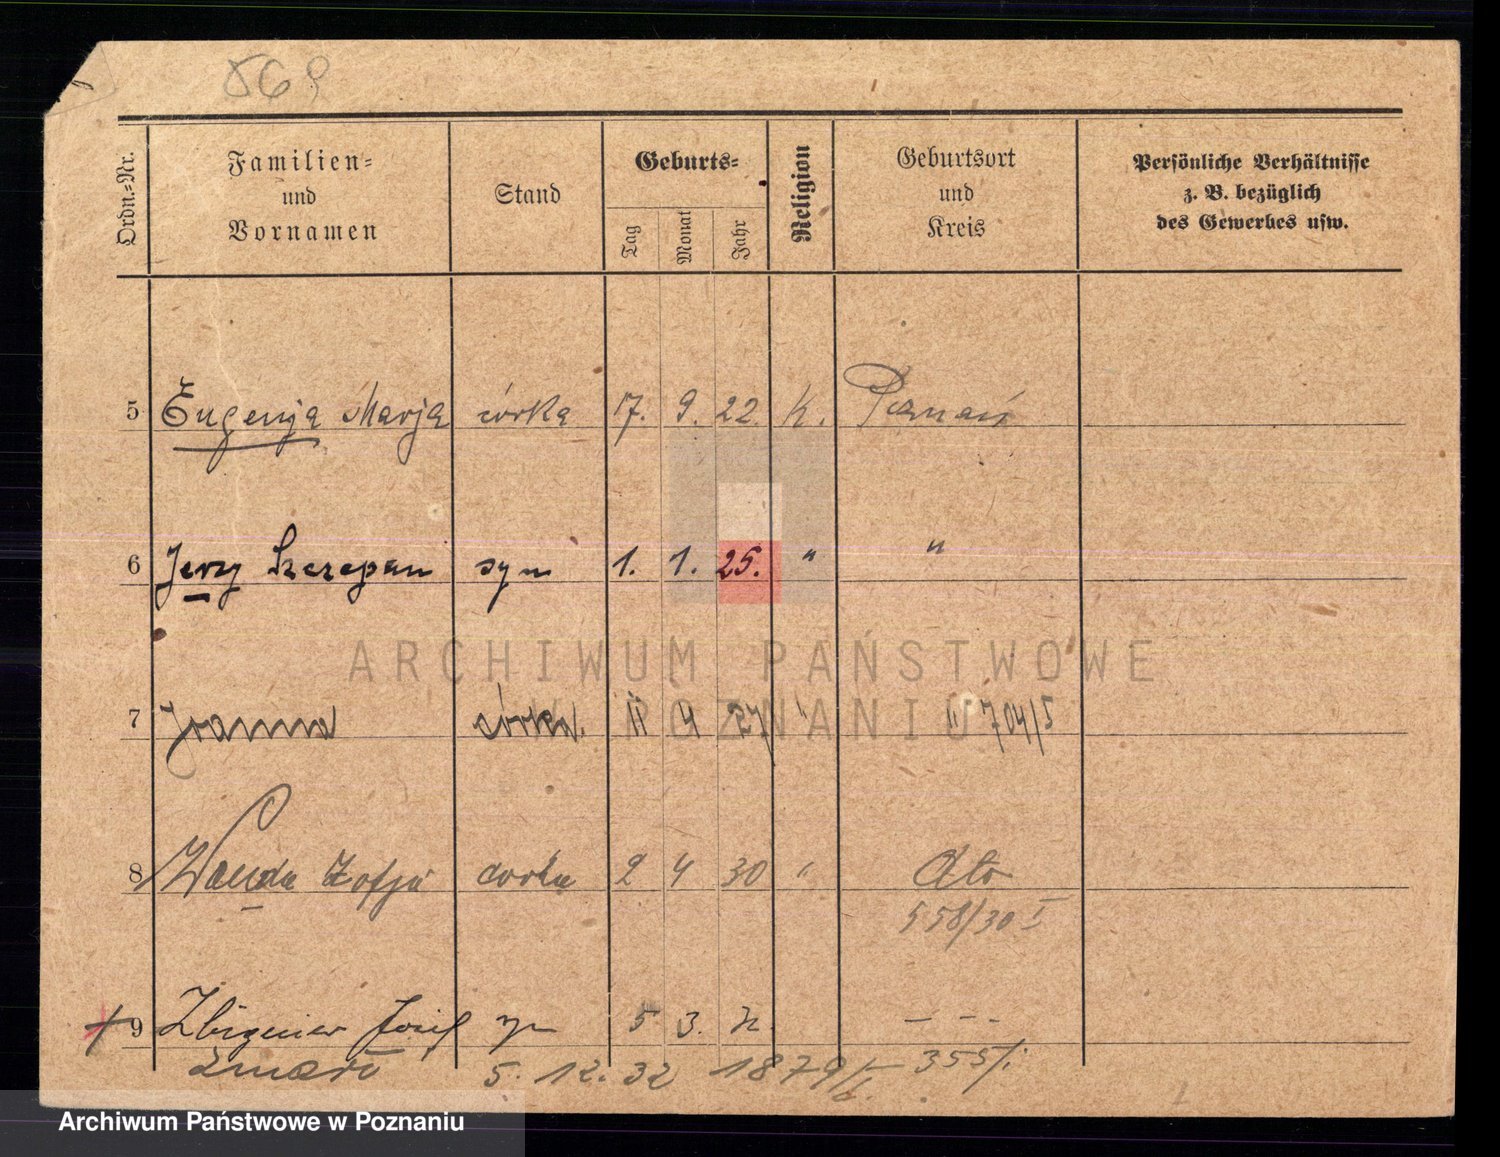 Ordn.-Nr.
Familien-
und
Vornamen
Stand
Geburts-
Tag
Monat
Jahr
Religion
Geburtsort
und
Kreis
Persönliche Verhältnisse
z. B. bezüglich
des Gewerbes usw.
5 Eugenja Marja córka 17. 9. 22. k. Poznań
6 Jerzy Szczepan syn 1. 1. 25. " "
7 Joanna córka. 11 4 27 " 704/5
8 Wanda Zofja corka 2 4 30 " dto
558/30 I
9 Zbigniew Józef syn 5 3. - - -
Zmarł 5. 12. 32 1879/I. 355/
ARCHIWUM PAŃSTWOWE
W POZNANIU
Archiwum Państwowe w Poznaniu